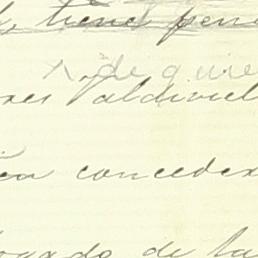 tiene pen
de quie
res Valdiviel
conceder
ogado de la